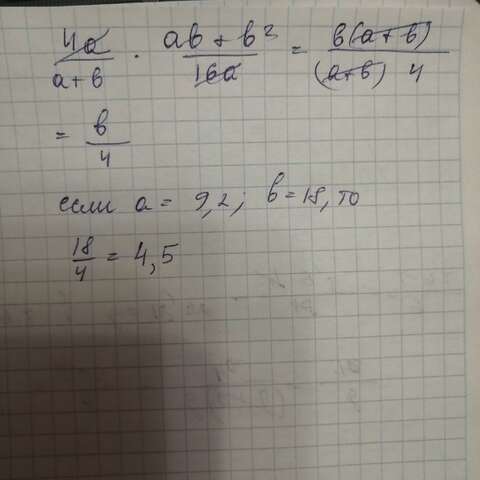 4a/a+b · ab+b²/16a = b(a+b)/(a+b) 4
= b/4
если a = 9,2; b = 18, то
18/4 = 4,5